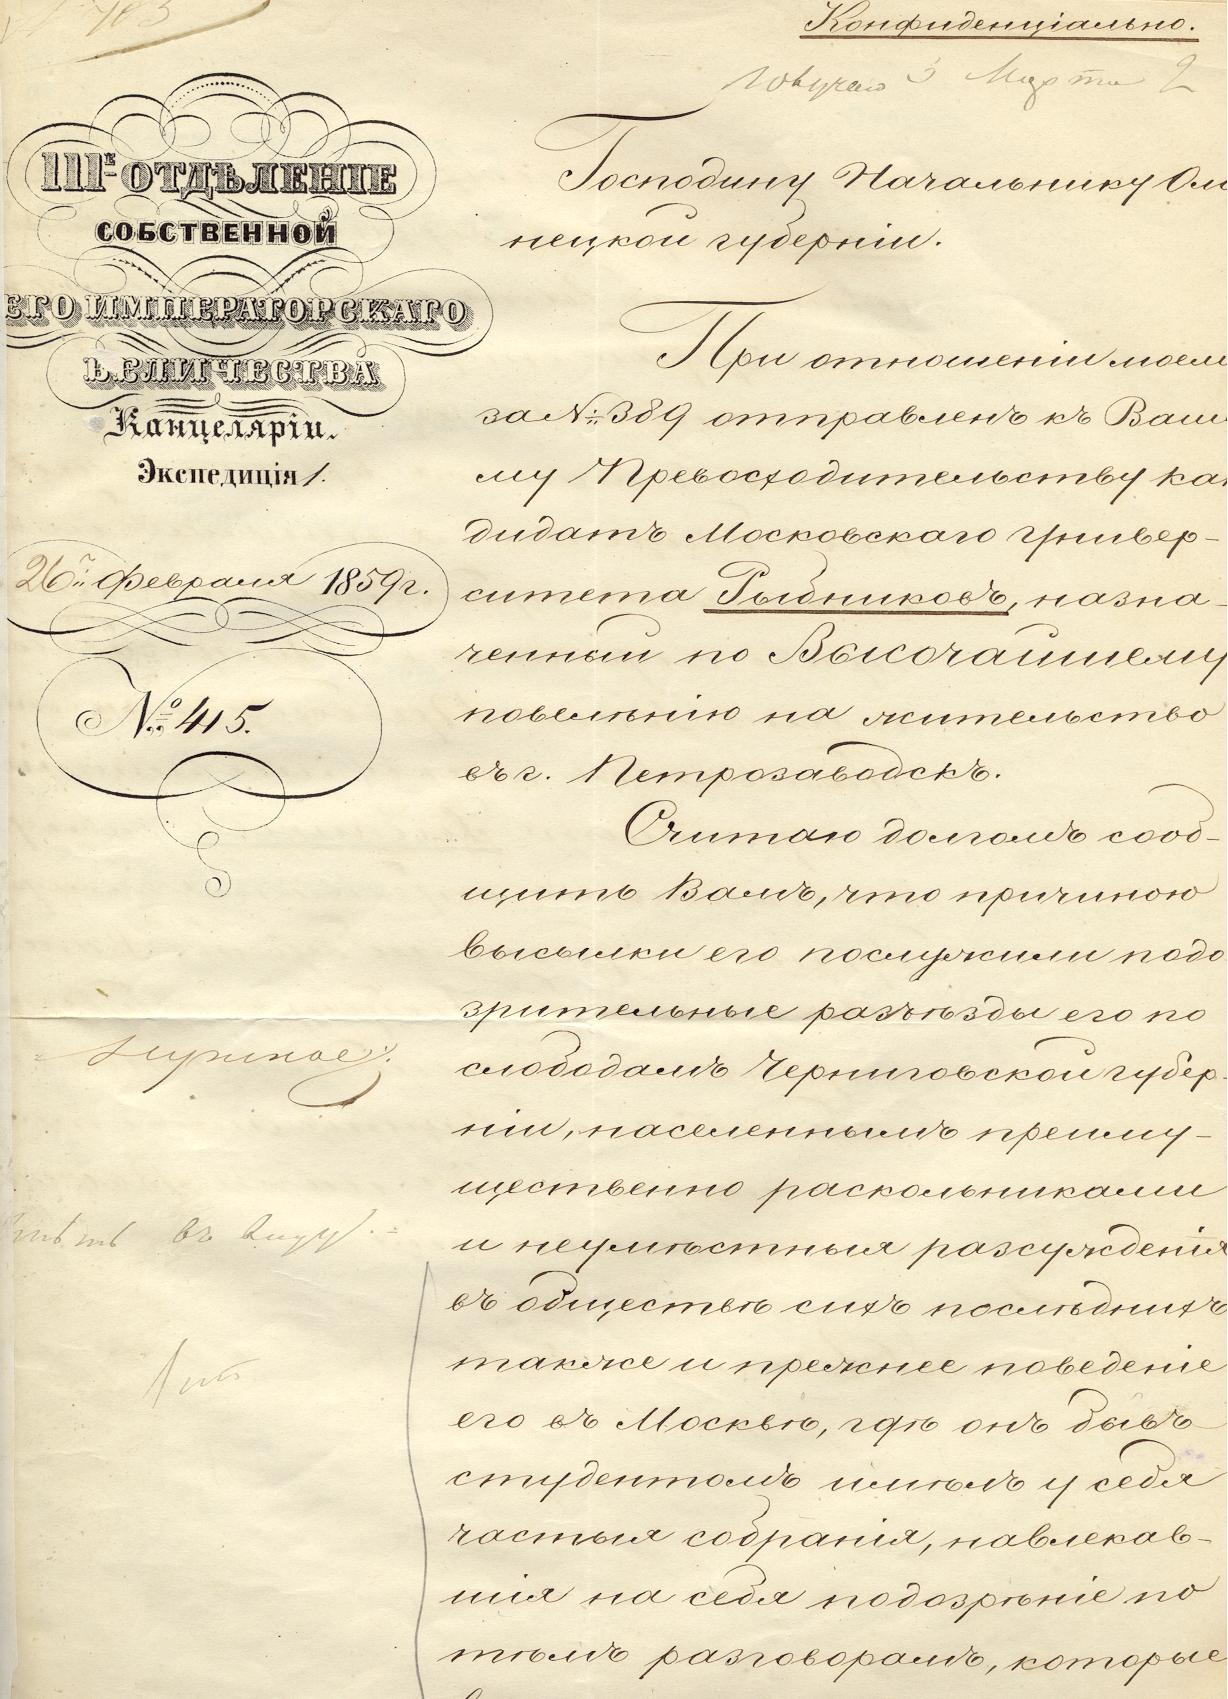 Конфиденціально.
3 Марта
IIIе ОТДѢЛЕНІЕ
СОБСТВЕННОЙ
ЕГО ИМПЕРАТОРСКАГО
ВЕЛИЧЕСТВА
Канцеляріи.
Экспедиція 1.
26го Февраля 1859 г.
№ 415.
Господину Начальнику Оло
нецкой губерніи.
При отношеніи моем
за № 389 отправленъ къ Ваше
му Превосходительству кан
дидатъ Московскаго Универ-
ситета Рыбниковъ, назна-
ченный по Высочайшему
повелѣнію на жительство
въ г. Петрозаводскъ.
Считаю долгомъ сооб-
щить Вамъ, что причиною
высылки его послужили подо
зрительные разъѣзды его по
слободамъ Черниговской губер-
ніи, населеннымъ преиму-
щественно раскольниками
и неумѣстныя разсужденія
въ обществѣ сихъ послѣднихъ
также и прежнее поведеніе
его въ Москвѣ, гдѣ онъ бывъ
студентомъ имѣлъ у себя
частыя собранія, навлекав-
шія на себя подозрѣніе по
тѣмъ разговорамъ, которые
Имѣть въ виду.